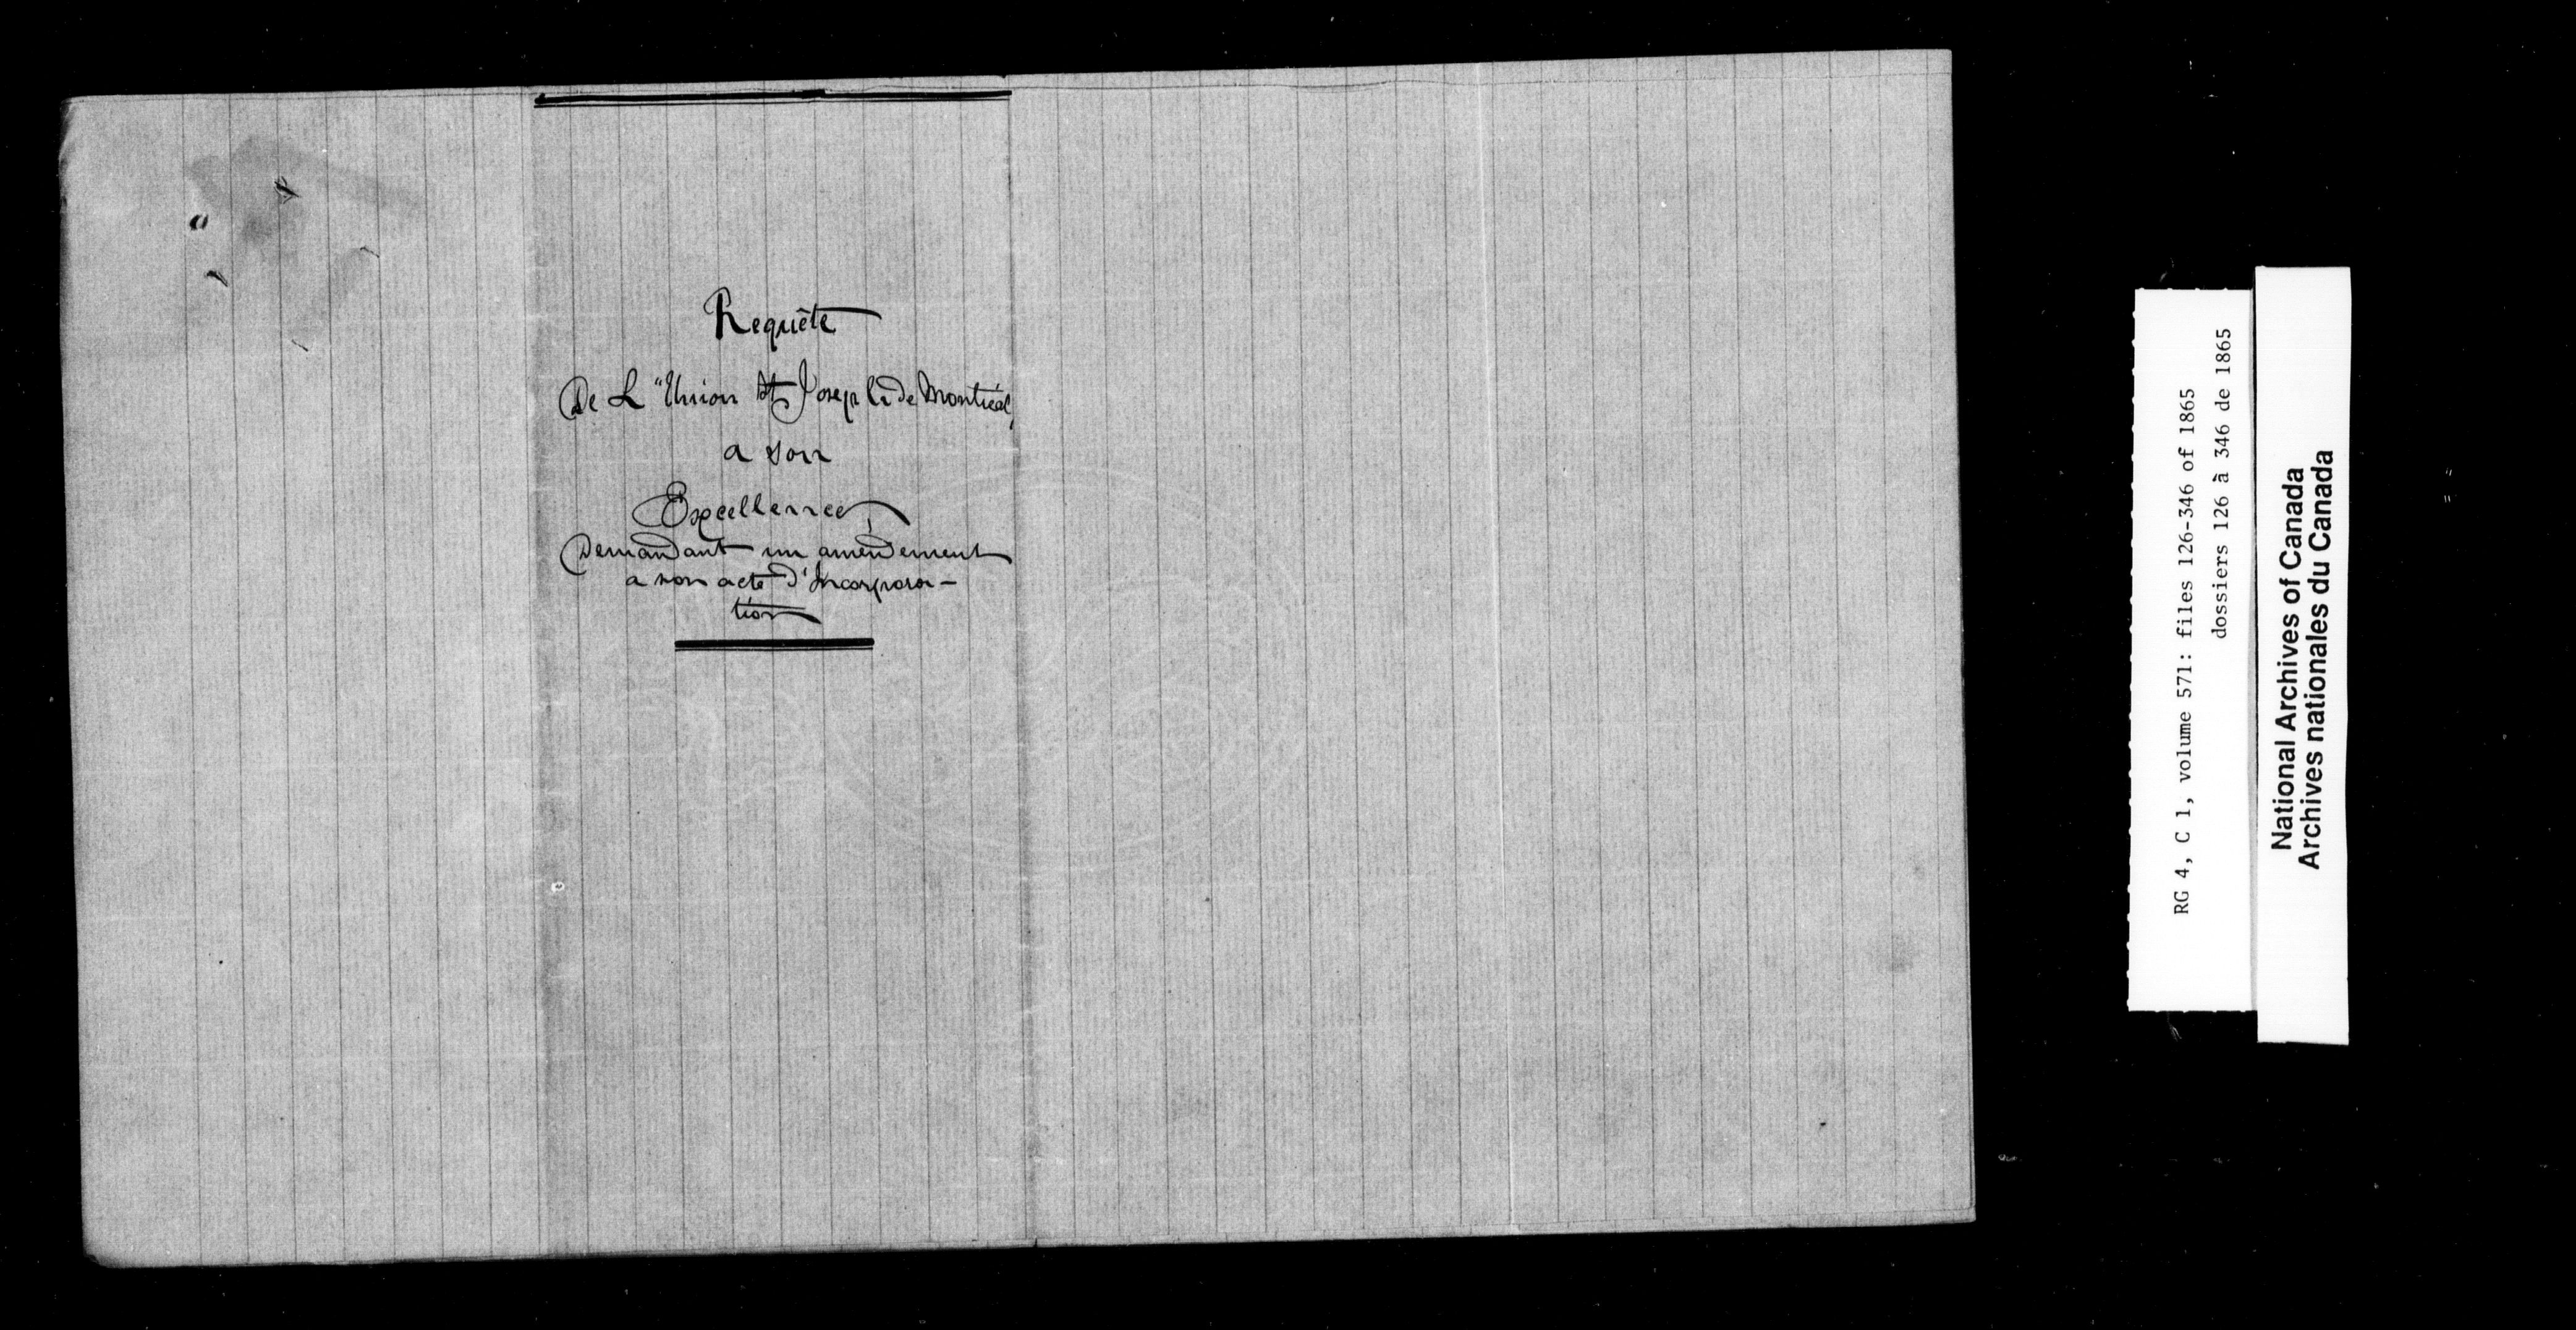 Requête
De L "Union St Joseph de Montréal,
a son
Excellence,
Demandant un amendement
a son acte d'Incorpora-
tion
RG 4, C 1, volume 571: files 126-346 of 1865
dossiers 126 à 346 de 1865
National Archives of Canada
Archives nationales du Canada